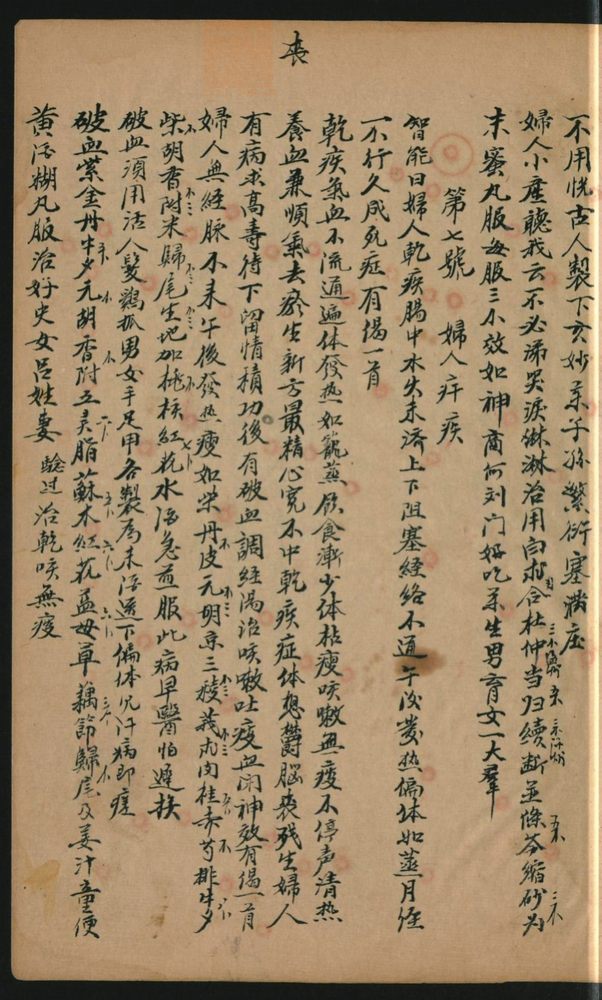 丧
不用悦古人製下亥妙京子孫繁衍塞满庄
婦人小産聽我云不必啼哭淚淋淋治用白朮合杜仲当归續断並條芩缩砂为
末蜜丸服每服三小效如神商何刘门好吃药生男育女一大羣
第七號 婦人幵疾
智能曰婦人乾疾腸中水失未济上下阻塞經络不通午後蒸热偏体如蒸月經
一不行久成死症有偈一首
乾疾氣血不流通遍体發热如籠蒸飲食漸少体枯瘦咳嗽無痰不停声清热
養血兼順氣去瘀生新方最精心寬不中乾疾症体想欝腦丧残生婦人
有病求高壽待下留情積功後有破血調經湯治咳嗽吐痰血闭神效有偈一首
婦人無經脉不来午後發热瘦如柴丹皮元明京三稜莪朮肉桂赤芍排牛夕
柴胡香附米歸尾生地加桃核紅花水酒急煎服此病早醫怕遲挨
破血須用活人髮鸡抓男女手足甲各製為末酒送下偏体见汗病即瘥
破血紫金丹牛夕元胡香附五灵脂蘇木紅花益母草藕節歸尾及姜汁童便
黄酒糊丸服治好史女吕姓妻 驗过治乾咳無痰